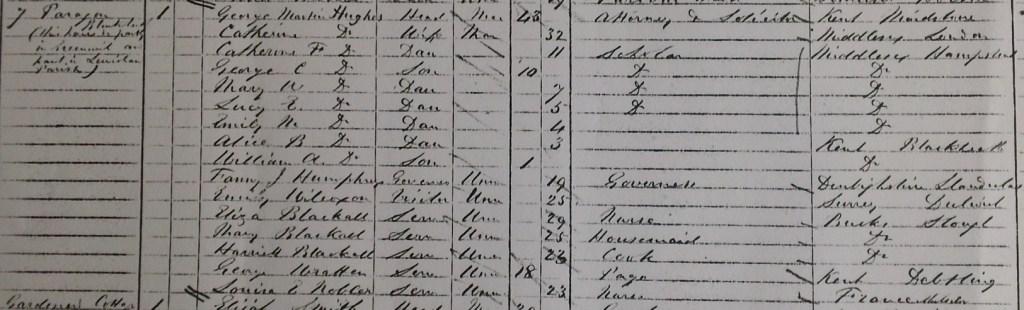 7 Paragon 1 George Martin Hughes Head Mar 43 Attorney & Solicitor Kent Maidstone
(this house is partly Catherine Do Wife Mar 32 Middlesex London
in Greenwich and Catherine F Do Dau 11 Scholar Middlesex Hampstead
part in Lewisham George C Do Son 10 Do Do
Parish) Mary Do Dau 7 Do Do
Lucy E Do Dau 5 Do Do
Emily M Do Dau 4 Do
Alice B Do Dau 3 Kent Blackheath
William A Do Son 1 Do
Fanny J Humphrys Governess Unm 19 Governess Derbyshire
Emily Wilcoxon Visitor Unm 25 Surrey Dulwich
Eliza Blackall Serv Unm 29 Nurse Bucks Slough
Mary Blackall Serv Unm 25 Housemaid Do
Harriett Blackall Serv Unm Cook Do
George Wratten Serv Unm 18 Page Kent Debtling
Louisa C Serv 23 Nurse France
Gardener Cottage 1 Smith Head